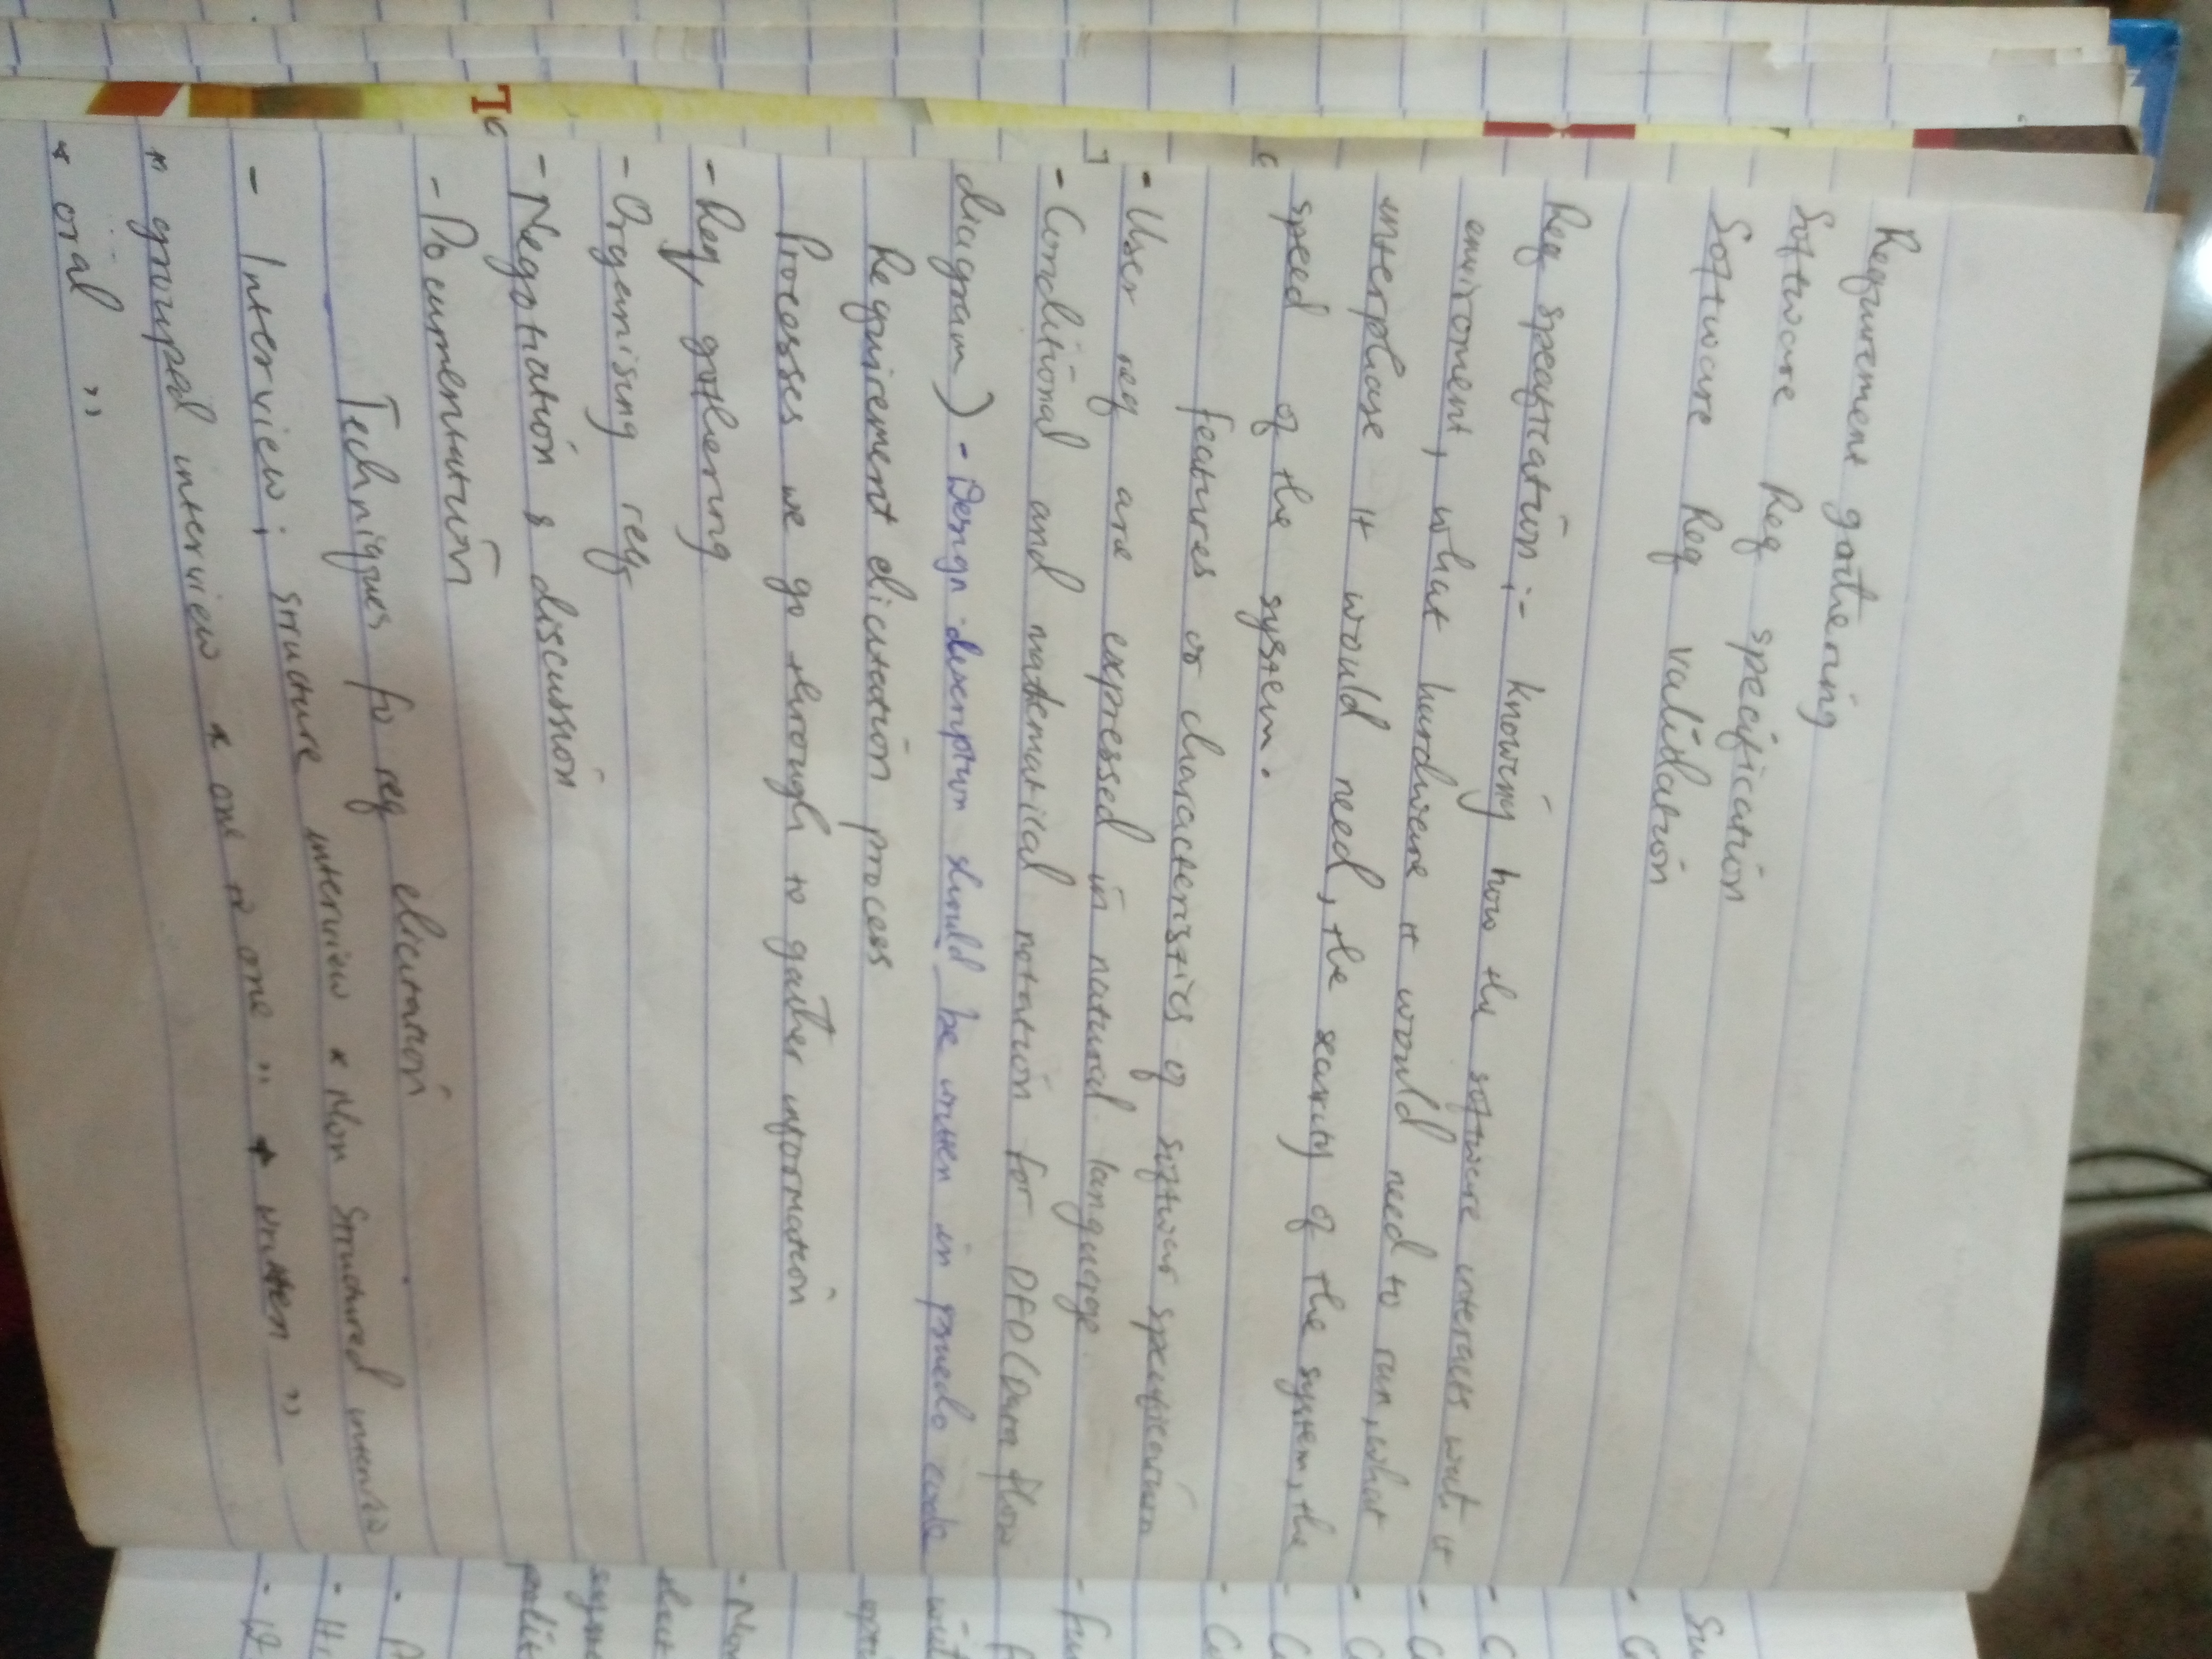 Requirement gathering
Software Req specification
Software Req validation
Req specification ;- Knowing how the software interacts with it
enviroment, what hardware it would need to run, what
interphase it would need, the security of the system, the
speed of the system.
features or characteristics of softwar specification
- User req are expressed in natural language
- Conditional and mathematical notation for DFD (Data flow
diagram) - Design description should be written in psuedo code
Requirement elicitation process
Processes we go through to gather information
- Req gathering
- Organising req
- Negotiation & discussion
- Documentation
Techniques fo req elicitation
- Interview; structure interview * Non Structured interview
* grouped interview * one to one " * written "
* oral "